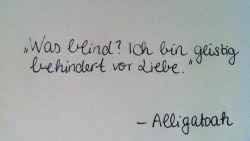 „Was blind? Ich bin geistig
behindert vor Liebe."
- Alligatoah